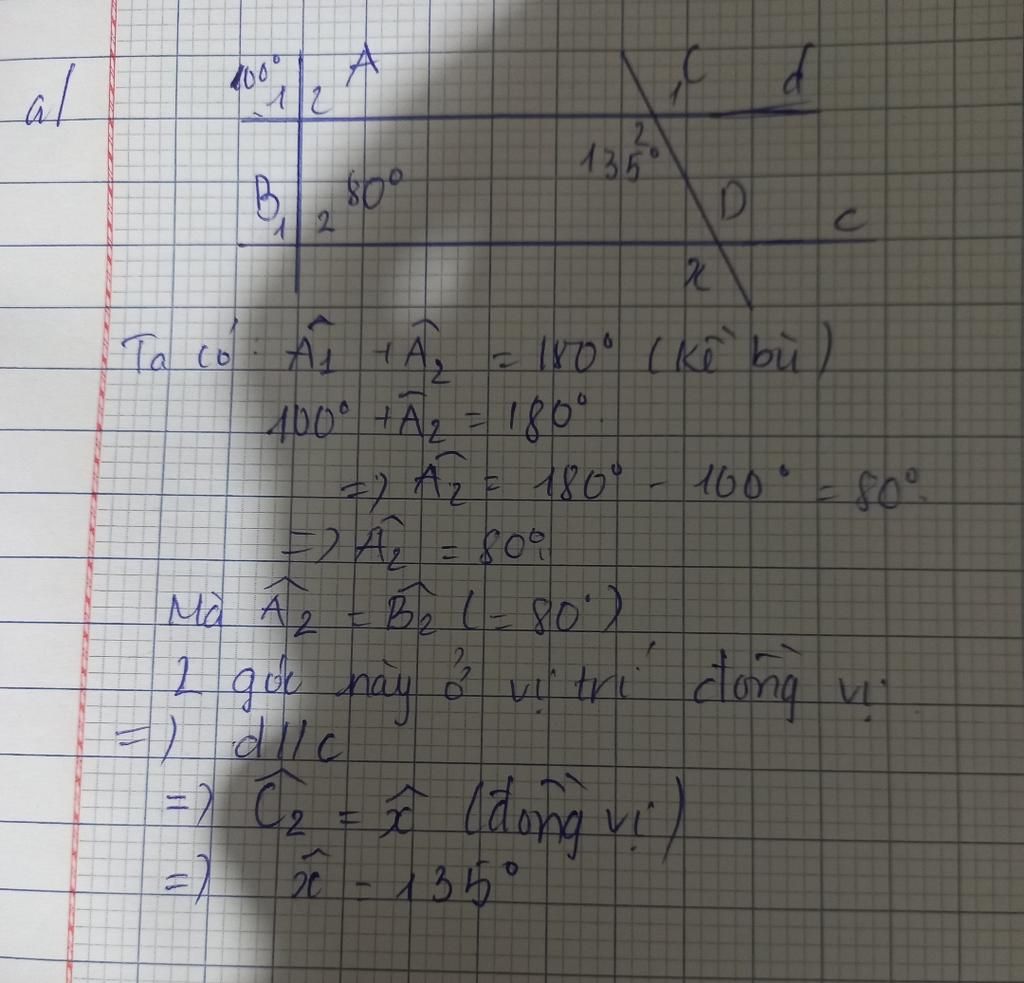 a/
100° 1 2 A 1 C d
135° 2
B 1 2 80° D c
x
Ta có: Â1 + Â2 = 180° (kề bù)
100° + Â2 = 180°.
=) Â2 = 180° - 100° = 80°.
=) Â2 = 80°.
Mà Â2 = B̂2 (= 80°)
2 góc này ở vị trí đồng vị
=) d // c
=) Ĉ2 = x̂ (đồng vị)
=) x̂ = 135°